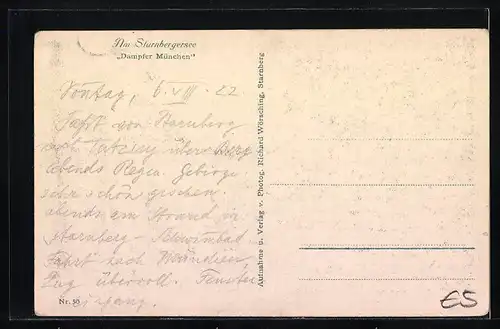 Am Starnbergersee
„Dampfer München“
Sontag, 6. VIII. 22
Fahrt von Starnberg
nach Tutzing über Berg
abends Regen. Gebirge
sehr schön gesehen.
abends am Strand in
Starnberg - Schwimbad
Fahrt nach München
Zug übervoll. Fenster
Nr. 30
Aufnahme u. Verlag v. Photog. Richard Wörsching, Starnberg
ES